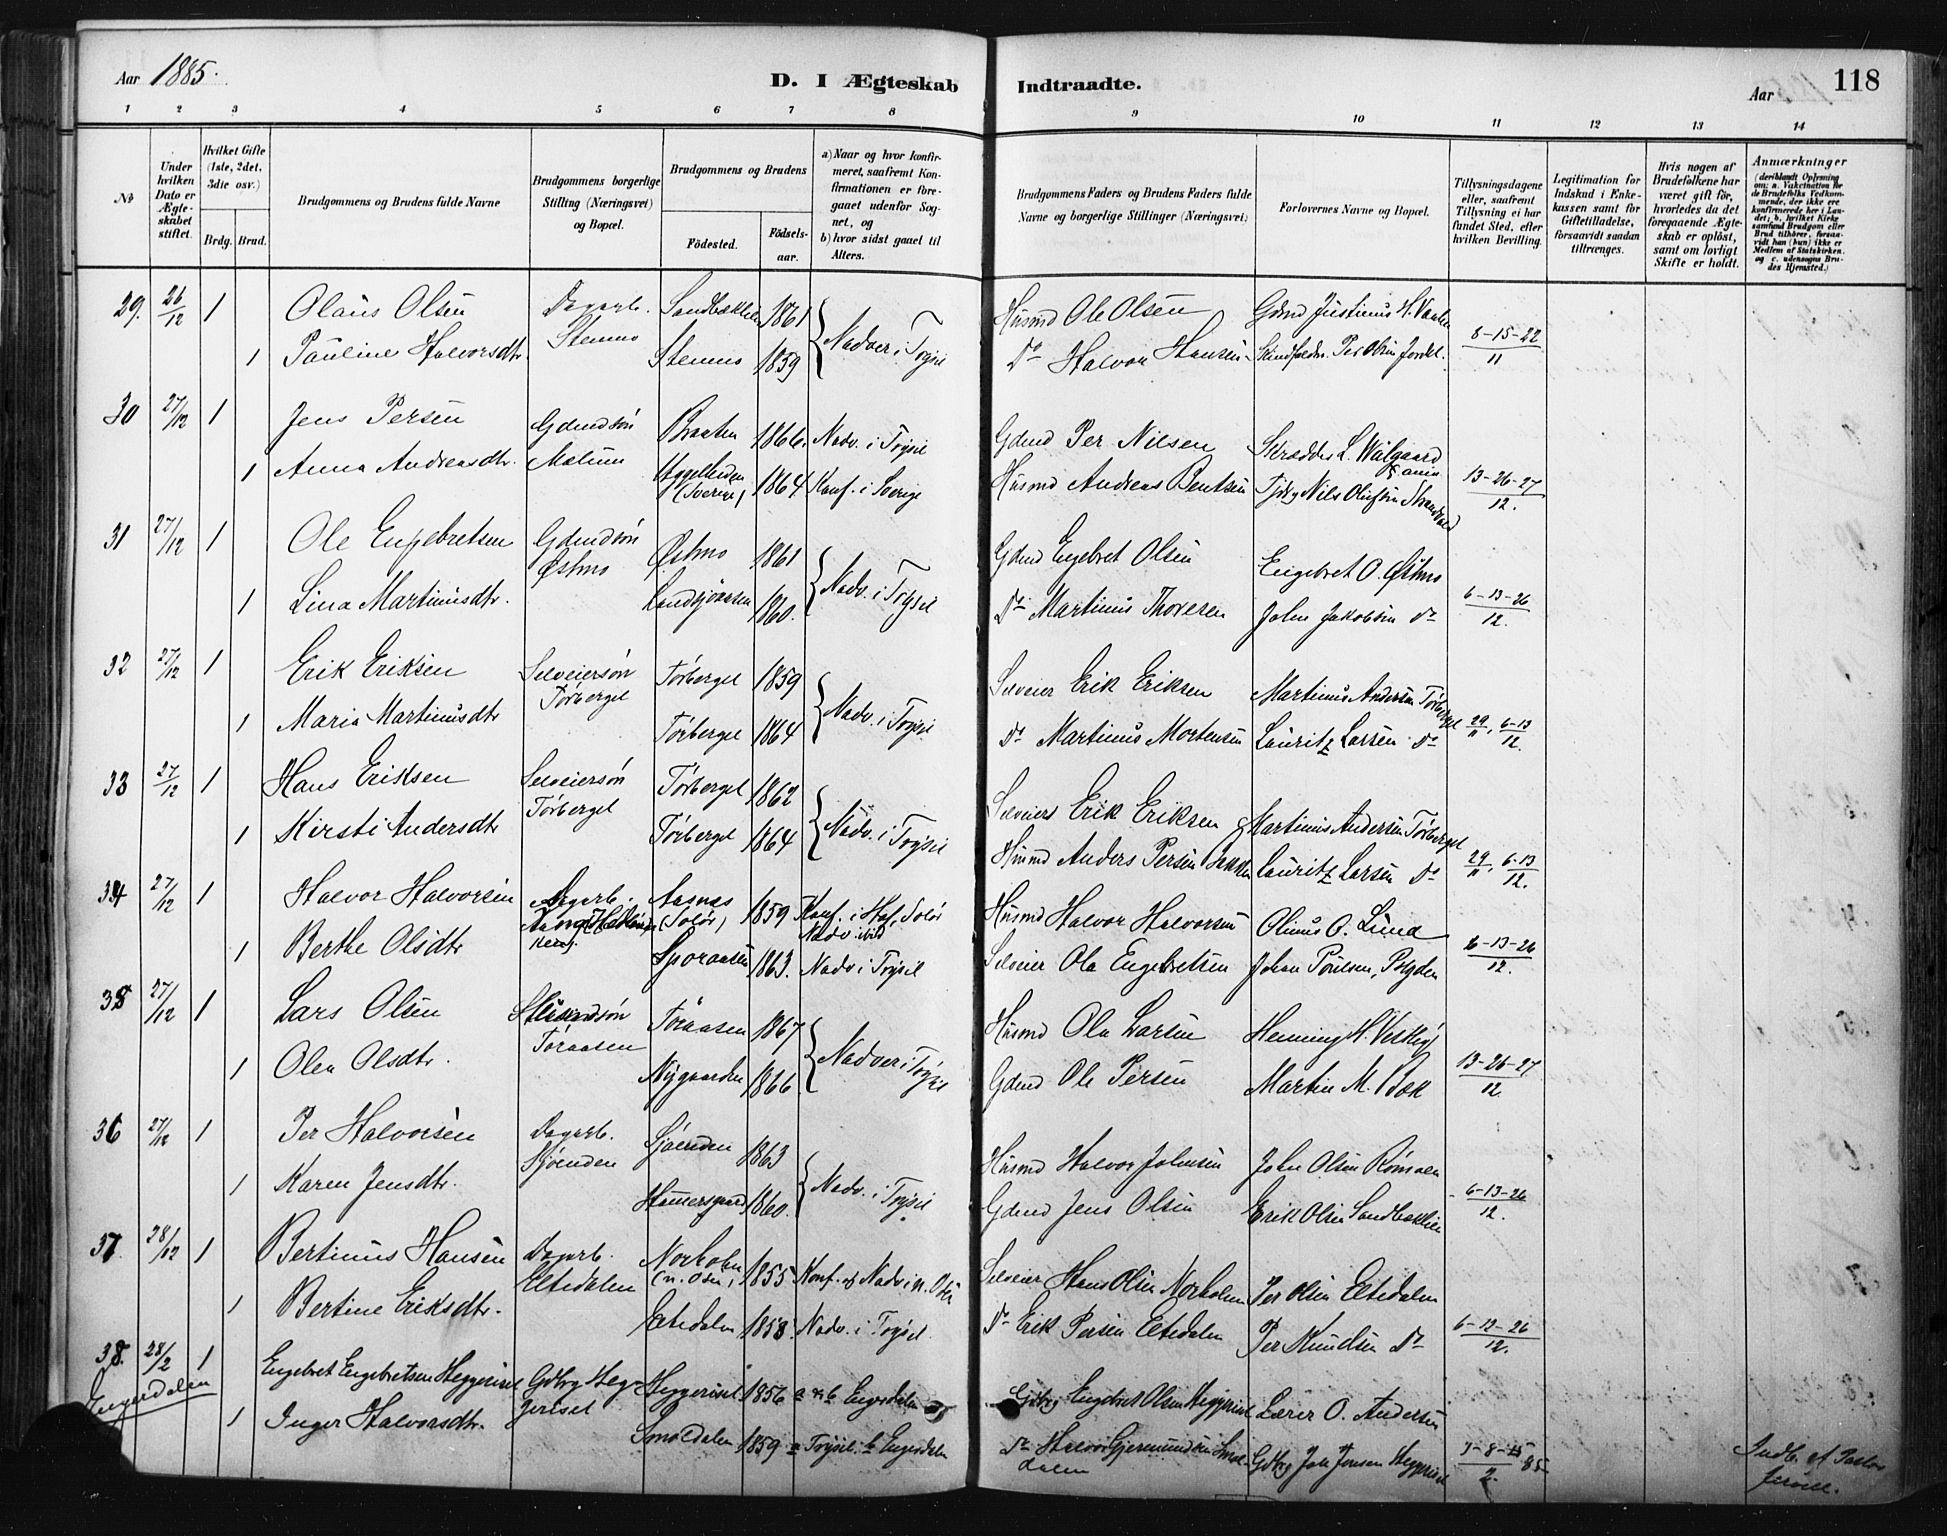 Aar 1885.
D. I Ægteskab Indtraadte.
Aar
118
1 2 3 4 5 6 7 8 9 10 11 12 13 14
No
Under hvilken Dato er Ægteskabet stiftet.
Hvilket Gifte (1ste, 2det, 3die osv.)
Brdg. Brud.
Brudgommens og Brudens fulde Navne
Brudgommens borgerlige Stilling (Næringsvei) og Bopæl.
Brudgommens og Brudens
Födested.
Födselsaar.
a) Naar og hvor konfirmeret, saafremt Konfirmationen er foregaaet udenfor Sognet, og
b) hvor sidst gaaet til Alters.
Brudgommens Faders og Brudens Faders fulde Navne og borgerlige Stillinger (Næringsvei)
Forlovernes Navne og Bopæl.
Tillysningsdagene eller, saafremt Tillysning ei har fundet Sted, efter hvilken Bevilling.
Legitimation for Indskud i Enkekassen samt for Giftetilladelse, forsaavidt saadan tiltrænges.
Hvis nogen af Brudefolkene har været gift för, hvorledes da det foregaaende Ægteskab er oplöst, samt om lovligt Skifte er holdt.
Anmærkninger (deriblandt Oplysning om: a. Vakcination for de Brudefolks Vedkommende, der ikke ere konfirmerede her i Landet; b. hvilket Kirkesamfund Brudgom eller Brud tilhörer, forsaavidt han (hun) ikke er Medlem af Statskirken, og c. udensogns Brudes Hjemsted.)
29. 26/12 1 Olaus Olsen Dagarb. Stenmo Sandbæklien 1861 Nadver i Trysil Husmd Ole Olsen Gdmd Justinus H.
1 Pauline Halvorsdtr. Stenmo 1859 Do Halvor Hansen Per Olsen Jordet. 8-15-22/11
30 27/12 1 Jens Persen Gdmdsön Mælum Braaten 1866. Nadv. i Trysil Gdmd Per Nilsen Skrædder L. Walgaard
1 Anna Andreasdtr. (Sverige) 1864 Konf. i Sverige Husmd Andreas Bentsen Nils Olufsen 13-26-27/12.
31 27/12 1 Ole Engebretsen Gdmdsön Østmo Østmo 1861 Nadv. i Trysil Gdmd Engebret Olsen Engebret O. Østmo
1 Lina Martinusdtr. Landsjöaasen 1860. Do Martinus Thoresen John Jakobsen do 6-13-26/12.
32 27/12 1 Erik Eriksen Selveiersön Törberget Törberget 1859 Nadv. i Trysil Selveier Erik Eriksen Martinus Andersen Törberget
1 Maria Martinusdtr Törberget 1864 Do Martinus Mortensen Lauritz Larsen Do 29/11, 6-13/12.
33 27/12 1 Hans Eriksen Selveiersön Törberget Törberget 1862 Nadv. i Trysil Selveiers Erik Eriksen Martinus Andersen Törberget
1 Kirsti Andersdtr Törberget 1864 Husmd Anders Persen Lauritz Larsen Do 29/11, 6-13/12.
34 27/12 1 Halvor Halvorsen Dagarb. Aasnæs (Solör) 1859 Konf. i Hof, Solör Nadv. ibid Husmd Halvor Halvorsen Olinus O. Lund
1 Berthe Olsdtr Sporaasen 1863. Nadv i Trysil Selveier Ola Engebretsen Johan Poulsen, 6-13-26/12.
35 27/12 1 Lars Olsen Toraasen Toraasen 1867 Nadver i Trysil Husmd Ola Larsen Henning H.
1 Olea Olsdtr. Nygaarden 1866 Gdmd Ole Persen Martin M. Bæk 13-26-27/12
36 27/12 1 Per Halvorsen Dagarb. Sjöenden Sjöenden 1863 Nadv. i Trysil Husmd Halvor Johnsen John Olsen Römoen
1 Karen Jensdtr. 1860. Gdmd Jens Olsen Erik Olsen Sandbæklien 6-13-26/12.
37 28/12 1 Bertinus Hansen Dagarb. Eltedalen Norholm (n. Osen) 1855 Konf. og Nadv i n. Osen Selveier Hans Olsen Norholm Per Olsen Eltedalen
1 Bertine Eriksdtr. Eltedalen 1858 Nadv. i Trysil. Do Erik Persen Eltedalen Per Knudsen do 6-13-26/12.
38. 28/2 1 Engebret Engebretsen Heggeriset Gdbrg Heggeriset Heggeriset 1856 a og b Engerdalen Gdbrg Engebret Olsen Heggeriset Lærer O. Andersen
Engerdalen
1 Inger Halvorsdtr. Smoldalen 1859 a Trysil b Engerdalen Do Halvor Gjermundsen Smoldalen Gdbrg Jensen Heggeriset 85 Indb. af Pastor